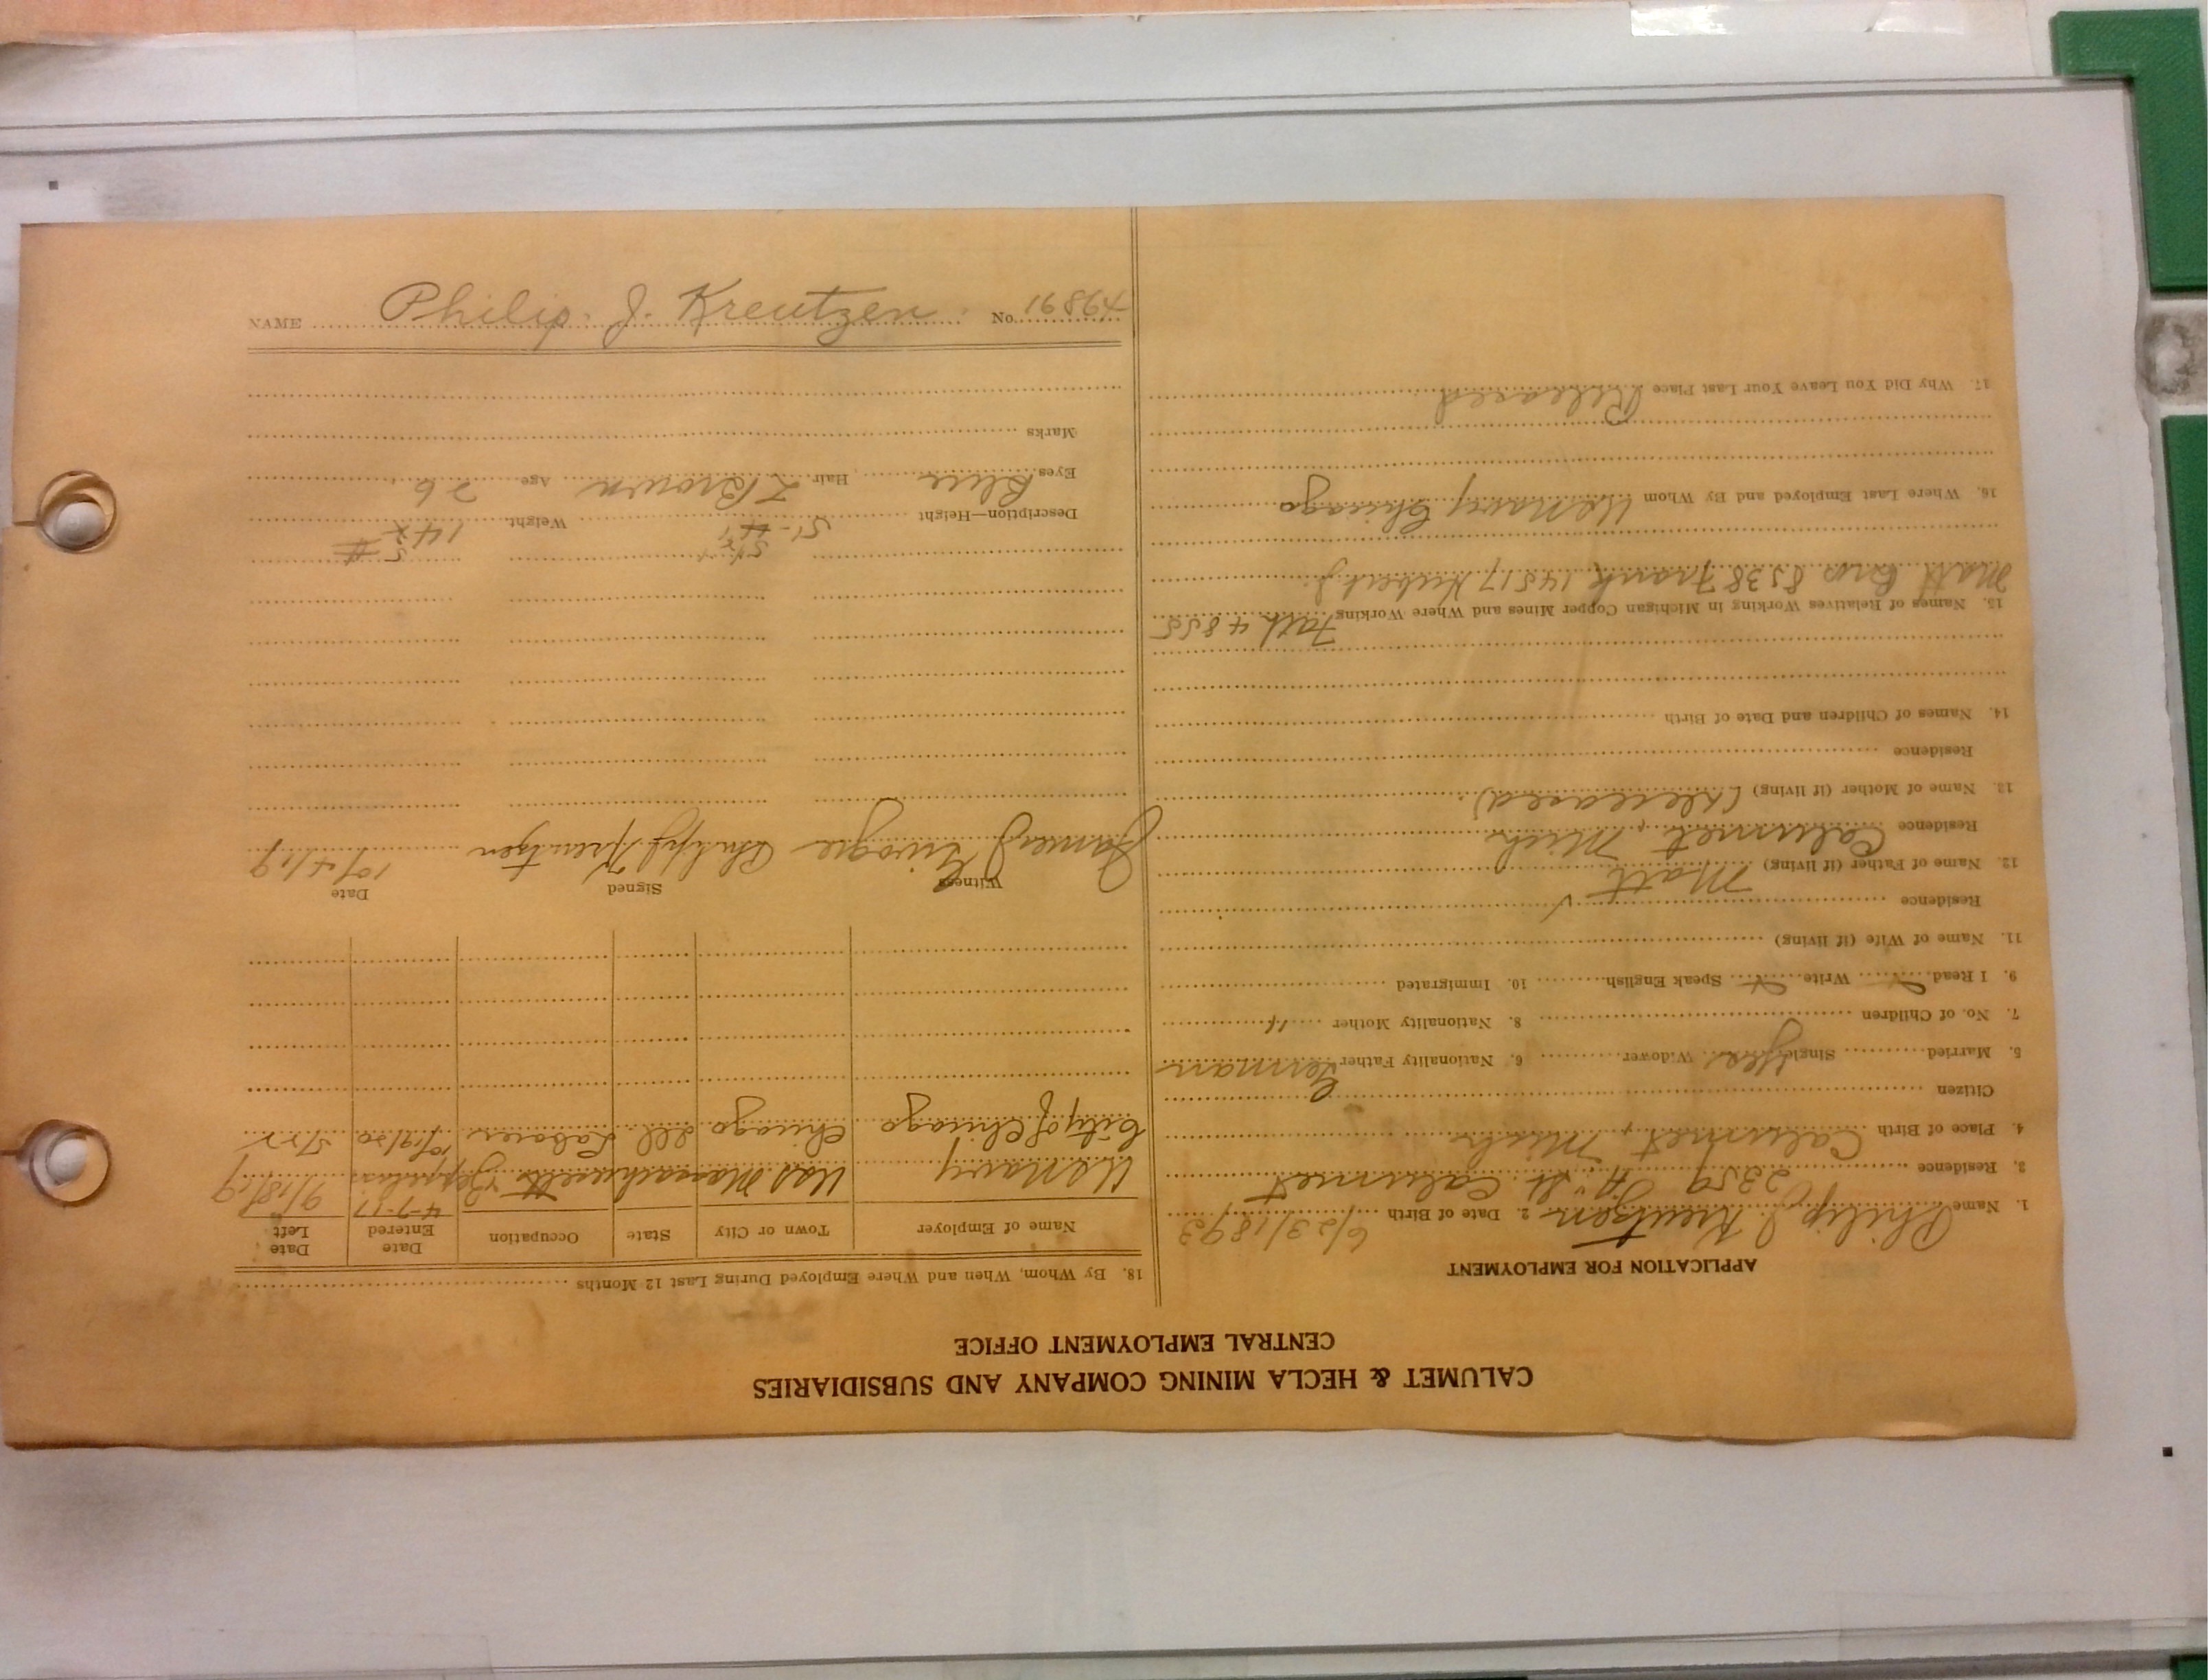 CALUMET & HECLA MINING COMPANY AND SUBSIDIARIES
CENTRAL EMPLOYMENT OFFICE
APPLICATION FOR EMPLOYMENT
1. Name Philip J. Kreutzen 2. Date of Birth 6/23/1893
3. Residence 2359 St. Calumet
4. Place of Birth Calumet, Mich
Citizen
5. Married Single Yes Widower 6. Nationality Father German
7. No. of Children 8. Nationality Mother "
9. I Read Write Speak English 10. Immigrated
11. Name of Wife (if living)
Residence
12. Name of Father (if living) Matt
Residence Calumet, Mich
13. Name of Mother (if living) (Deceased)
Residence
14. Names of Children and Date of Birth
15. Names of Relatives Working in Michigan Copper Mines and Where Working Fath 4855
Matt Bros 8538 Frank 14517 Hubert J.
16. Where Last Employed and By Whom US Navy Chicago
17. Why Did You Leave Your Last Place Released
18. By Whom, When and Where Employed During Last 12 Months
Name of Employer Town or City State Occupation Date Entered Date Left
US Navy USS Massachusetts 4-7-17 9/18/19
City of Chicago Chicago Ill Laborer 10/19/20
Witness Signed Date
James J Philip J Kreutzen 10/4/19
Description—Height Weight
Eyes Blue Hair L Brown Age 26
Marks
NAME Philip. J. Kreutzen No. 16894